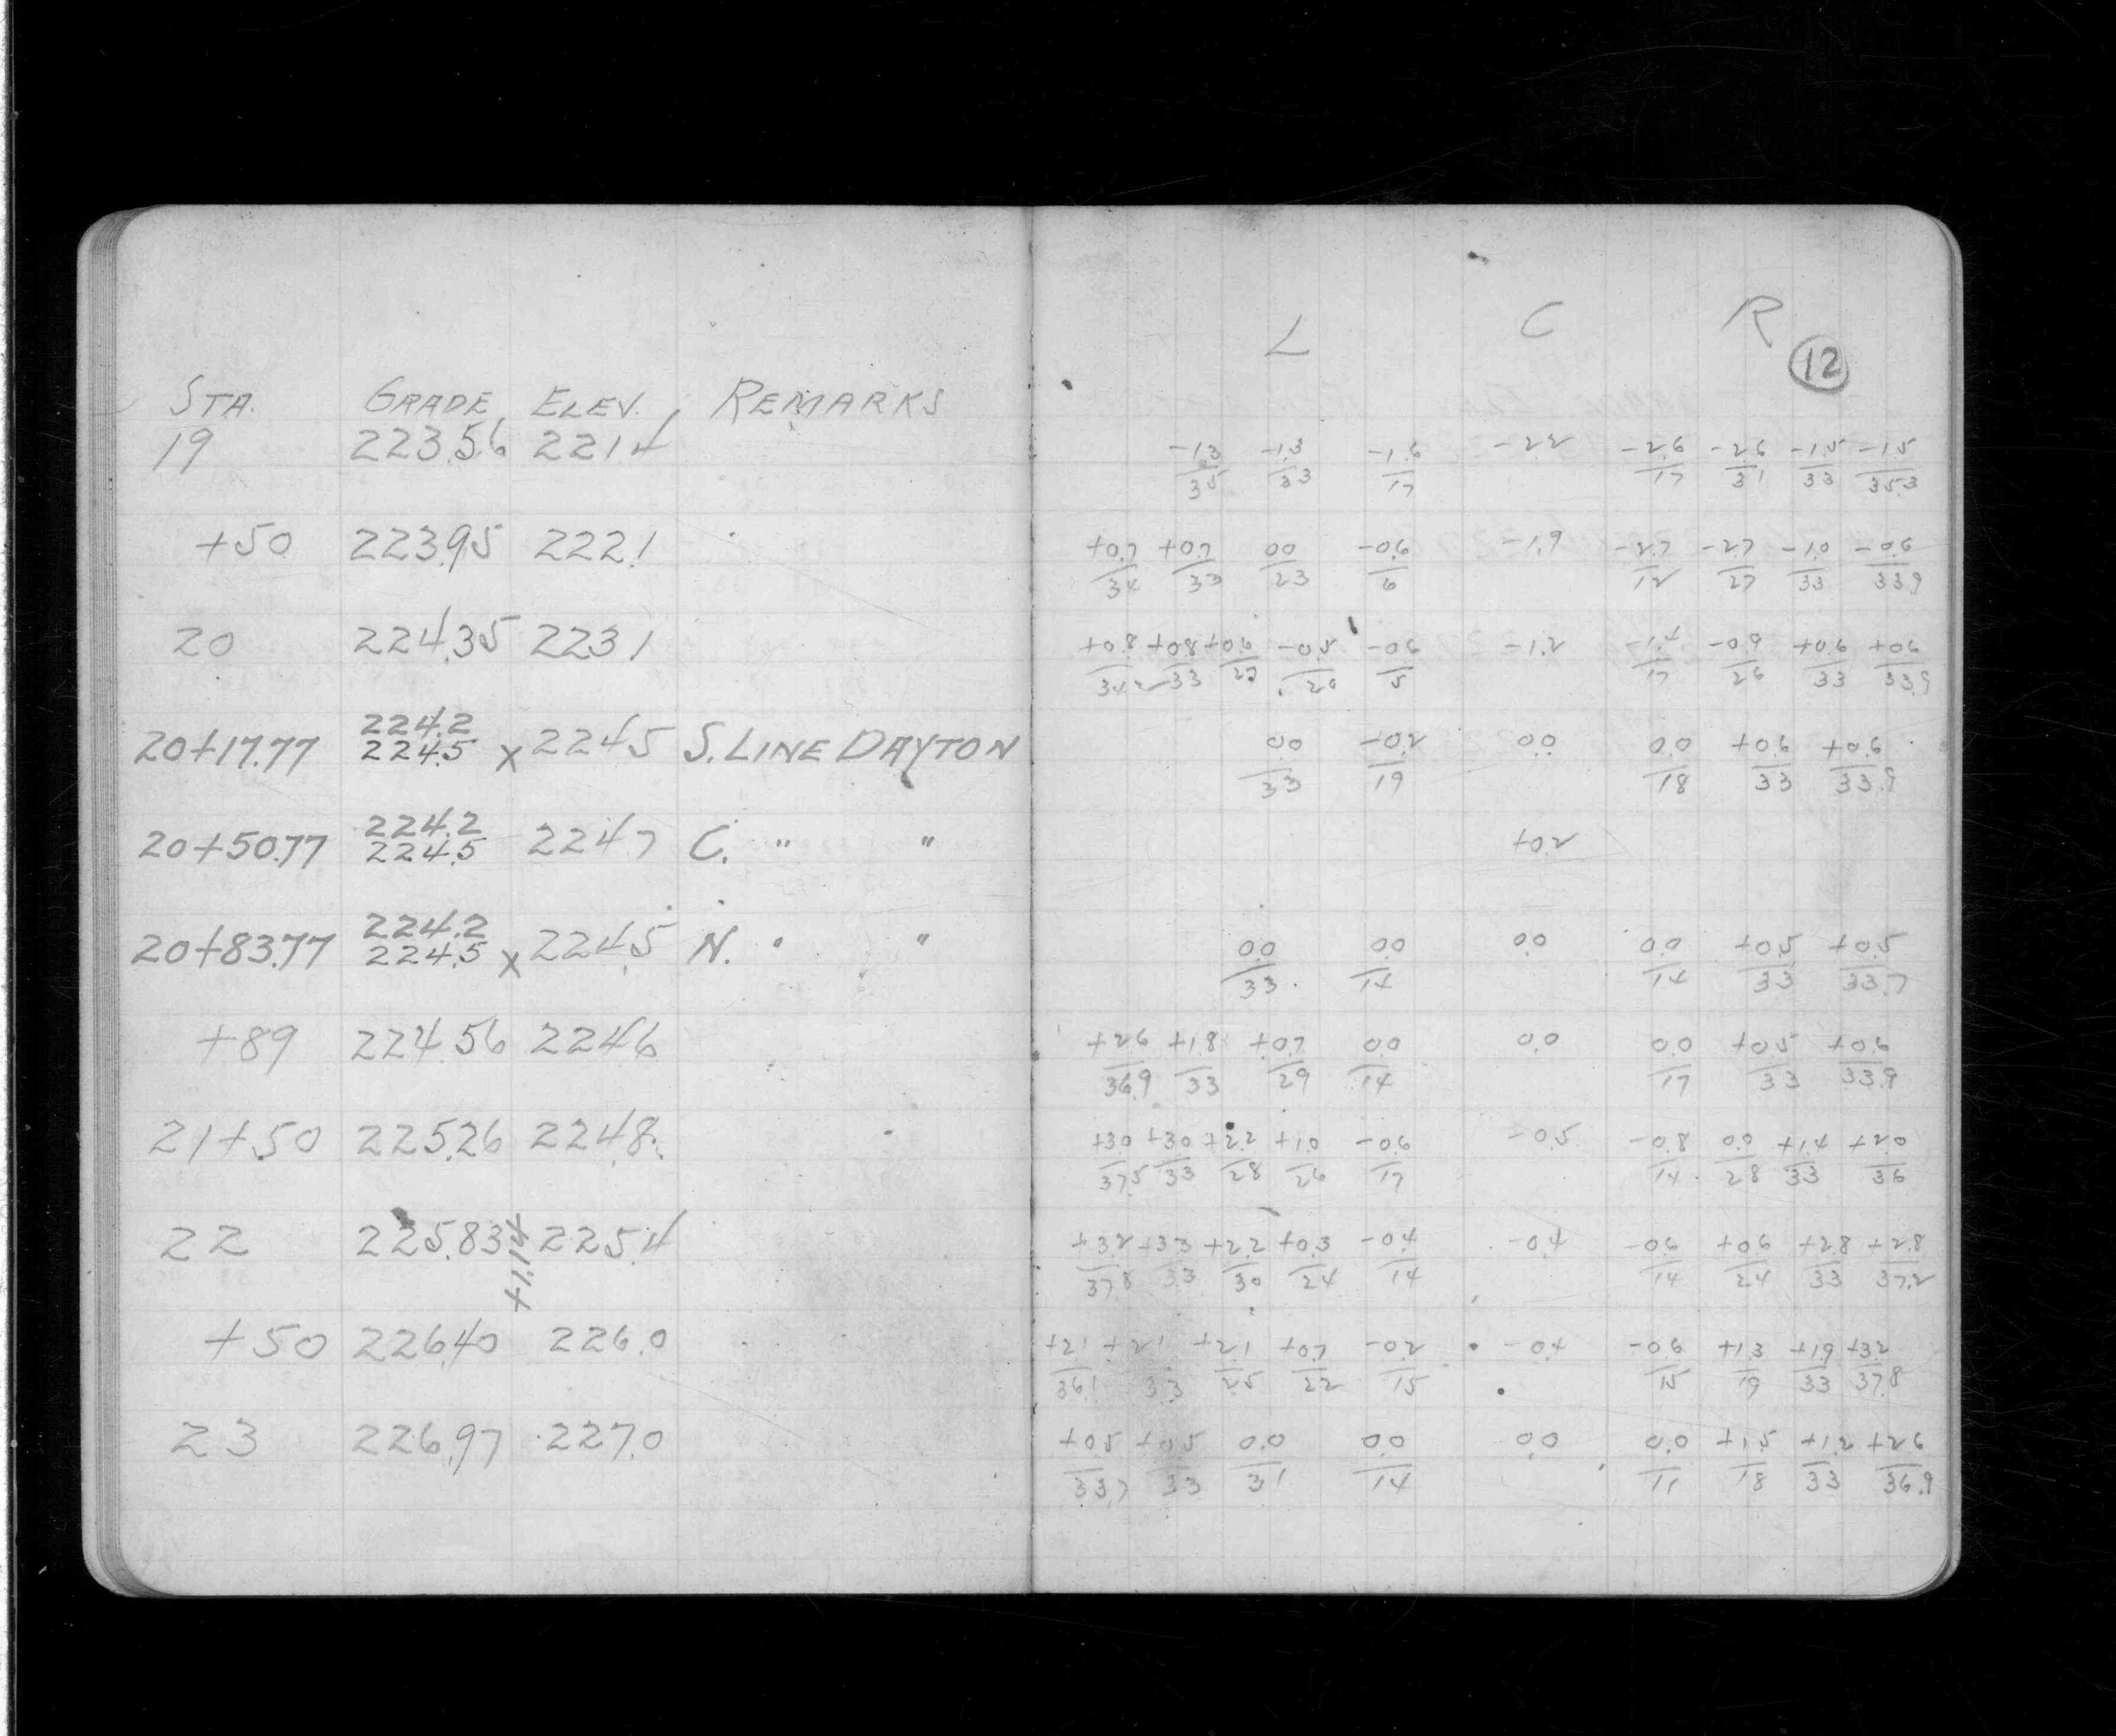 L C R
12
STA. GRADE ELEV. REMARKS
19 223.56 221.4 -1.3/35 -1.3/33 -1.6/17 -2.2 -2.6/17 -2.6/31 -1.5/33 -1.5/35.3
+50 223.95 222.1 +0.7/34 +0.7/33 0.0/23 -0.6/6 -1.9 -2.7/12 -2.7/27 -1.0/33 -0.6/33.9
20 224.35 223.1 +0.8/34.2 +0.8/33 +0.6/22 -0.5/20 -0.6/5 -1.2 -1.4/17 -0.9/26 +0.6/33 +0.6/33.9
224.2
20+17.77 224.5 x 224.5 S. LINE DAYTON 0.0/33 -0.2/19 0.0 0.0/18 +0.6/33 +0.6/33.9
224.2
20+50.77 224.5 224.7 C. " " +0.2
224.2
20+83.77 224.5 x 224.5 N. " " 0.0/33 0.0/14 0.0 0.0/14 +0.5/33 +0.5/33.7
+89 224.56 224.6 +2.6/36.9 +1.8/33 +0.7/29 0.0/14 0.0 0.0/17 +0.5/33 +0.6/33.9
21+50 225.26 224.8 +3.0/37.5 +3.0/33 +2.2/28 +1.0/26 -0.6/17 -0.5 -0.8/14 0.0/28 +1.4/33 +2.0/36
22 225.83 225.4 +3.2/37.8 +3.3/33 +2.2/30 +0.3/24 -0.4/14 -0.4 -0.6/14 +0.6/24 +2.8/33 +2.8/37.2
+1.14
+50 226.40 226.0 +2.1/36.1 +2.1/33 +2.1/25 +0.7/22 -0.2/15 -0.4 -0.6/15 +1.3/19 +1.9/33 +3.2/37.8
23 226.97 227.0 +0.5/33.7 +0.5/33 0.0/31 0.0/14 0.0 0.0/11 +1.5/18 +1.2/33 +2.6/36.9